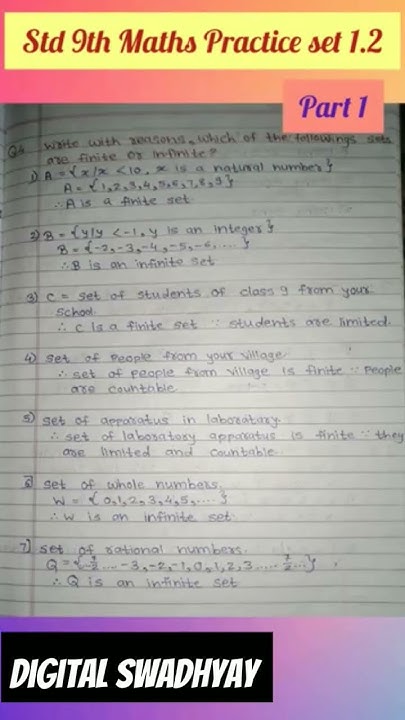 Std 9th Maths Practice set 1.2
Part 1
Q4 Write with reasons, which of the followings sets
are finite or infinite?
1) A = {x/x <10, x is a natural number}
A = {1,2,3,4,5,6,7,8,9}
∴ A is a finite set
2) B = {y/y <-1, y is an integer}
B = {-2,-3,-4,-5,-6,....}
∴ B is an infinite set
3) C = set of students of class 9 from your
school.
∴ C is a finite set ∵ students are limited.
4) set of people from your village
∴ set of people from village is finite ∵ people
are countable
5) set of apparatus in laboratary.
∴ set of laboratory apparatus is finite ∵ they
are limited and countable.
6) set of whole numbers.
W = {0,1,2,3,4,5,....}
∴ W is an infinite set.
7) set of rational numbers.
Q = { ....-3,-2,-1,0,1,2,3.... 7/2 ...}
∴ Q is an infinite set
DIGITAL SWADHYAY